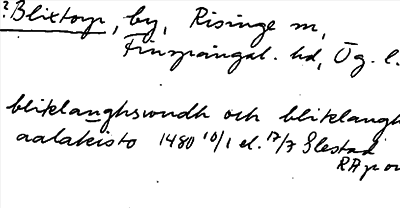 ? Blixtorp, by, Risinge sn,
Finspångal. hd, Ög. l.
bliklanghswndh och bliklangh
aalakisto 1480 10/1 el. 17/7 Slestad
RAp or